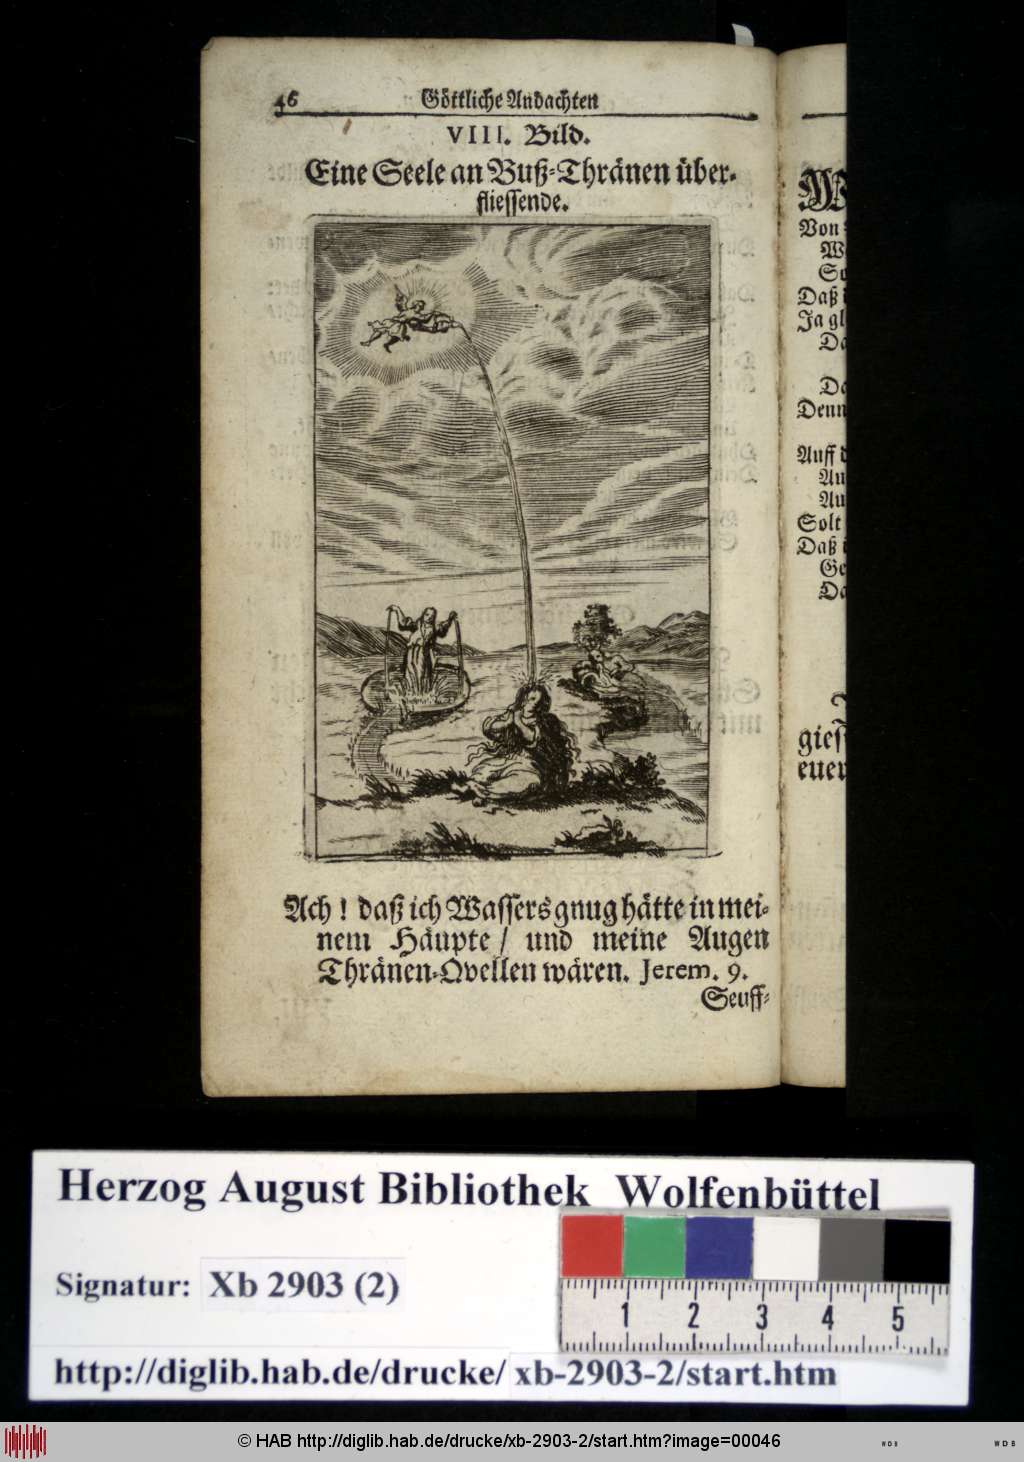 46 Göttliche Andachten
VIII. Bild.
Eine Seele an Buß-Thränen über-
fliessende.
Ach! daß ich Wassers gnug hätte in mei-
nem Häupte / und meine Augen
Thränen-Qvellen wären. Jerem. 9.
Seuff-
Von
Daß
Ja gl
Denn
Auff
Solt
Daß
gies
euer
Herzog August Bibliothek Wolfenbüttel
Signatur: Xb 2903 (2)
1 2 3 4 5
http://diglib.hab.de/drucke/ xb-2903-2/start.htm
© HAB http://diglib.hab.de/drucke/xb-2903-2/start.htm?image=00046
WDB WDB